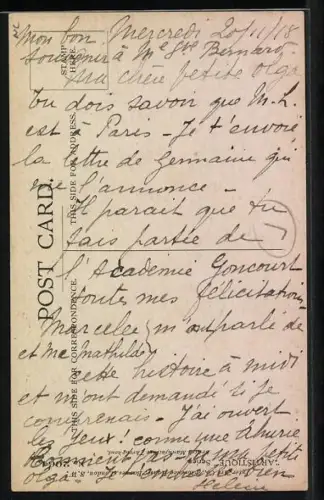 Mercredi 20/11/18
Mon bon
souvenir à Me Bernard.
Ma chère petite Olga
Tu dois savoir que M. L.
est à Paris - Je t'envoie
la lettre de Germaine qui
me l'annonce -
Il parait que tu
fais partie de
l'Academie Goncourt
toutes mes félicitations
Marcelle m'ont parlé de
et Me Mathilde
cette histoire à midi
et m'ont demandé si je
comprenais - J'ai ouvert
les yeux ! comme une ahurie
petite
Olga - Je
STAMP
HERE.
POST CARD.
THIS SIDE FOR ADDRESS.
THIS SIDE FOR CORRESPONDENCE.